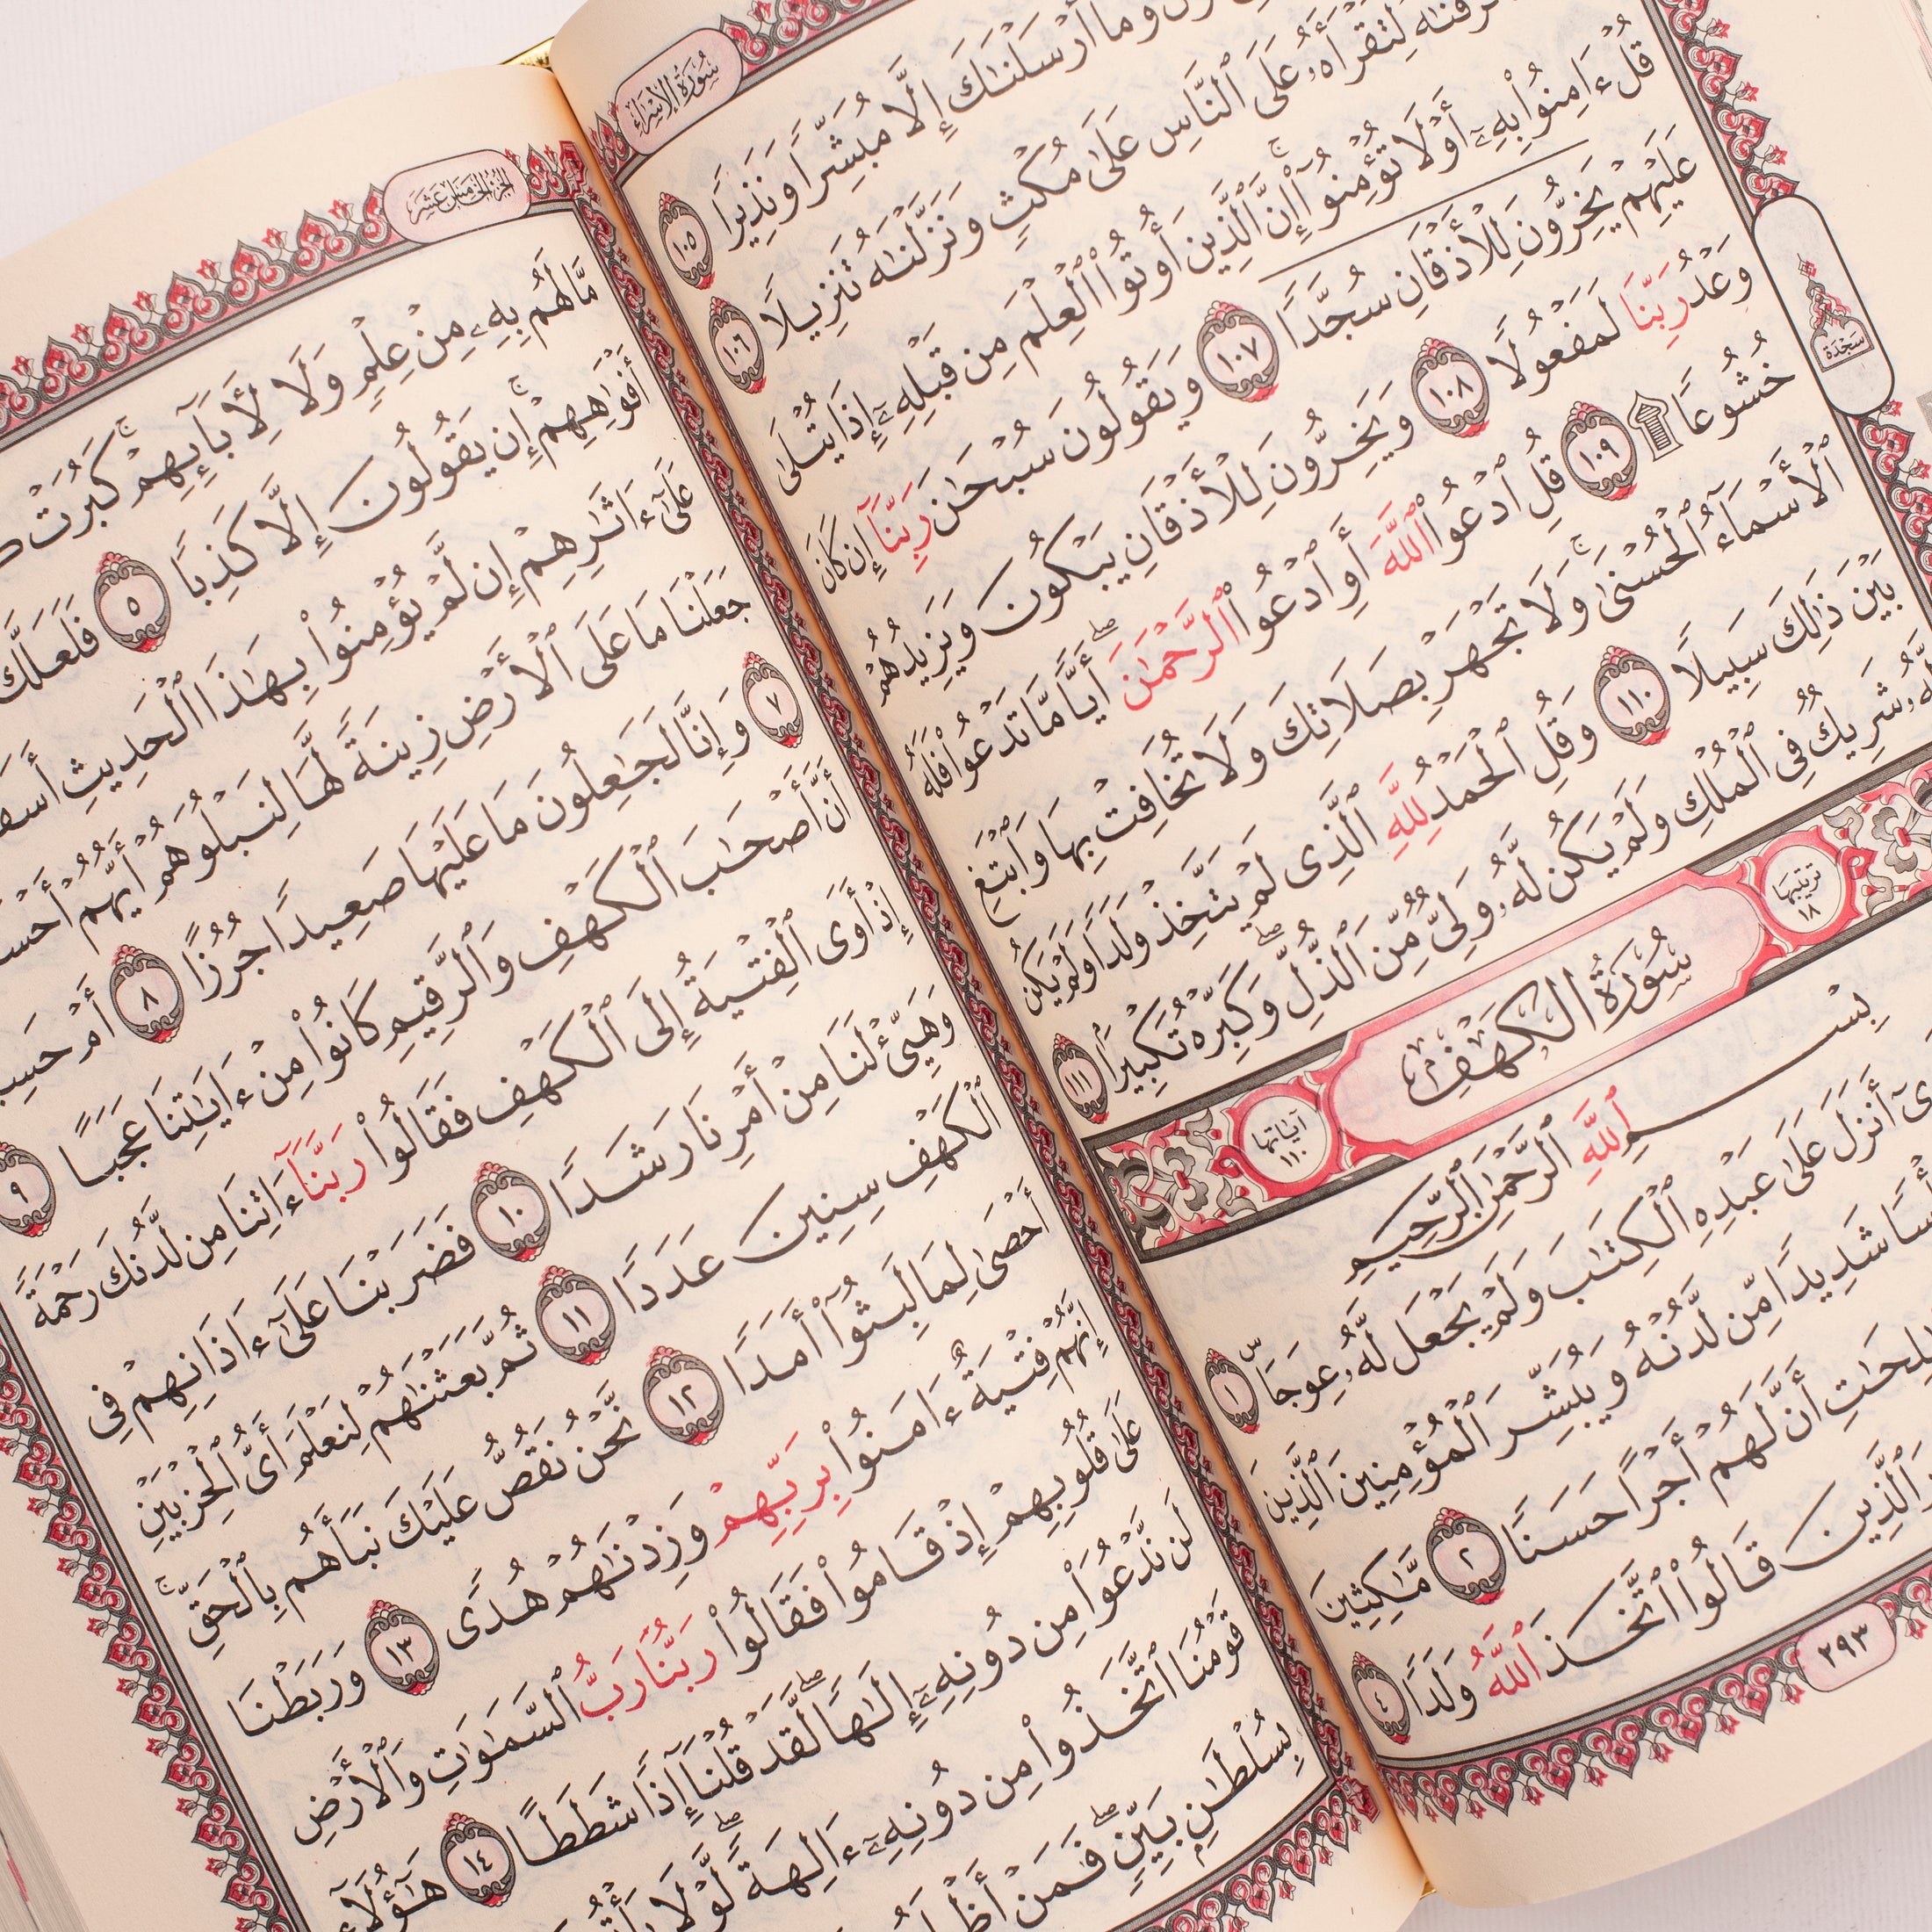 سُورَةُ الإِسْرَاءِ
وَمَا أَرْسَلْنَٰكَ إِلَّا مُبَشِّرًا وَنَذِيرًا ١٠٥
لِتَقْرَأَهُۥ عَلَى ٱلنَّاسِ عَلَىٰ مُكْثٍ وَنَزَّلْنَٰهُ تَنزِيلًا ١٠٦
قُلْ ءَامِنُوا۟ بِهِۦٓ أَوْ لَا تُؤْمِنُوٓا۟ ۚ إِنَّ ٱلَّذِينَ أُوتُوا۟ ٱلْعِلْمَ مِن قَبْلِهِۦٓ إِذَا يُتْلَىٰ
عَلَيْهِمْ يَخِرُّونَ لِلْأَذْقَانِ سُجَّدًا ١٠٧ وَيَقُولُونَ سُبْحَٰنَ رَبِّنَآ إِن كَانَ
وَعْدُ رَبِّنَا لَمَفْعُولًا ١٠٨ وَيَخِرُّونَ لِلْأَذْقَانِ يَبْكُونَ وَيَزِيدُهُمْ
خُشُوعًا ۩ ١٠٩ قُلِ ٱدْعُوا۟ ٱللَّهَ أَوِ ٱدْعُوا۟ ٱلرَّحْمَٰنَ ۖ أَيًّا مَّا تَدْعُوا۟ فَلَهُ
ٱلْأَسْمَآءُ ٱلْحُسْنَىٰ ۚ وَلَا تَجْهَرْ بِصَلَاتِكَ وَلَا تُخَافِتْ بِهَا وَٱبْتَغِ
بَيْنَ ذَٰلِكَ سَبِيلًا ١١٠ وَقُلِ ٱلْحَمْدُ لِلَّهِ ٱلَّذِى لَمْ يَتَّخِذْ وَلَدًا وَلَمْ يَكُن
شَرِيكٌ فِى ٱلْمُلْكِ وَلَمْ يَكُن لَّهُۥ وَلِىٌّ مِّنَ ٱلذُّلِّ ۖ وَكَبِّرْهُ تَكْبِيرًۢا ١١١
سَجْدَة
تَرْتِيبُهَا ١٨
سُورَةُ الكَهْفِ
آيَاتُهَا ١١٠
بِسْمِ ٱللَّهِ ٱلرَّحْمَٰنِ ٱلرَّحِيمِ
أَنزَلَ عَلَىٰ عَبْدِهِ ٱلْكِتَٰبَ وَلَمْ يَجْعَل لَّهُۥ عِوَجَا ۜ ١
شَدِيدًا مِّن لَّدُنْهُ وَيُبَشِّرَ ٱلْمُؤْمِنِينَ ٱلَّذِينَ
أَنَّ لَهُمْ أَجْرًا حَسَنًا ٢ مَّٰكِثِينَ
ٱلَّذِينَ قَالُوا۟ ٱتَّخَذَ ٱللَّهُ وَلَدًا ٤
٢٩٣
الجُزْءُ الخَامِسَ عَشَرَ
مَّا لَهُم بِهِۦ مِنْ عِلْمٍ وَلَا لِءَابَآئِهِمْ ۚ كَبُرَتْ
أَفْوَٰهِهِمْ ۚ إِن يَقُولُونَ إِلَّا كَذِبًا ٥ فَلَعَلَّكَ
عَلَىٰٓ ءَاثَٰرِهِمْ إِن لَّمْ يُؤْمِنُوا۟ بِهَٰذَا ٱلْحَدِيثِ
جَعَلْنَا مَا عَلَى ٱلْأَرْضِ زِينَةً لَّهَا لِنَبْلُوَهُمْ أَيُّهُمْ
٧ وَإِنَّا لَجَٰعِلُونَ مَا عَلَيْهَا صَعِيدًا جُرُزًا ٨ أَمْ
أَنَّ أَصْحَٰبَ ٱلْكَهْفِ وَٱلرَّقِيمِ كَانُوا۟ مِنْ ءَايَٰتِنَا عَجَبًا ٩
إِذْ أَوَى ٱلْفِتْيَةُ إِلَى ٱلْكَهْفِ فَقَالُوا۟ رَبَّنَآ ءَاتِنَا مِن لَّدُنكَ رَحْمَةً
وَهَيِّئْ لَنَا مِنْ أَمْرِنَا رَشَدًا ١٠ فَضَرَبْنَا عَلَىٰٓ ءَاذَانِهِمْ فِى
ٱلْكَهْفِ سِنِينَ عَدَدًا ١١ ثُمَّ بَعَثْنَٰهُمْ لِنَعْلَمَ أَىُّ ٱلْحِزْبَيْنِ
أَحْصَىٰ لِمَا لَبِثُوٓا۟ أَمَدًا ١٢ نَّحْنُ نَقُصُّ عَلَيْكَ نَبَأَهُم بِٱلْحَقِّ ۚ
إِنَّهُمْ فِتْيَةٌ ءَامَنُوا۟ بِرَبِّهِمْ وَزِدْنَٰهُمْ هُدًى ١٣ وَرَبَطْنَا
عَلَىٰ قُلُوبِهِمْ إِذْ قَامُوا۟ فَقَالُوا۟ رَبُّنَا رَبُّ ٱلسَّمَٰوَٰتِ وَٱلْأَرْضِ
لَن نَّدْعُوَا۟ مِن دُونِهِۦٓ إِلَٰهًا ۖ لَّقَدْ قُلْنَآ إِذًا شَطَطًا ١٤ هَٰٓؤُلَآءِ
قَوْمُنَا ٱتَّخَذُوا۟ مِن دُونِهِۦٓ ءَالِهَةً ۖ لَّوْلَا
بِسُلْطَٰنٍۭ بَيِّنٍ ۖ فَمَنْ